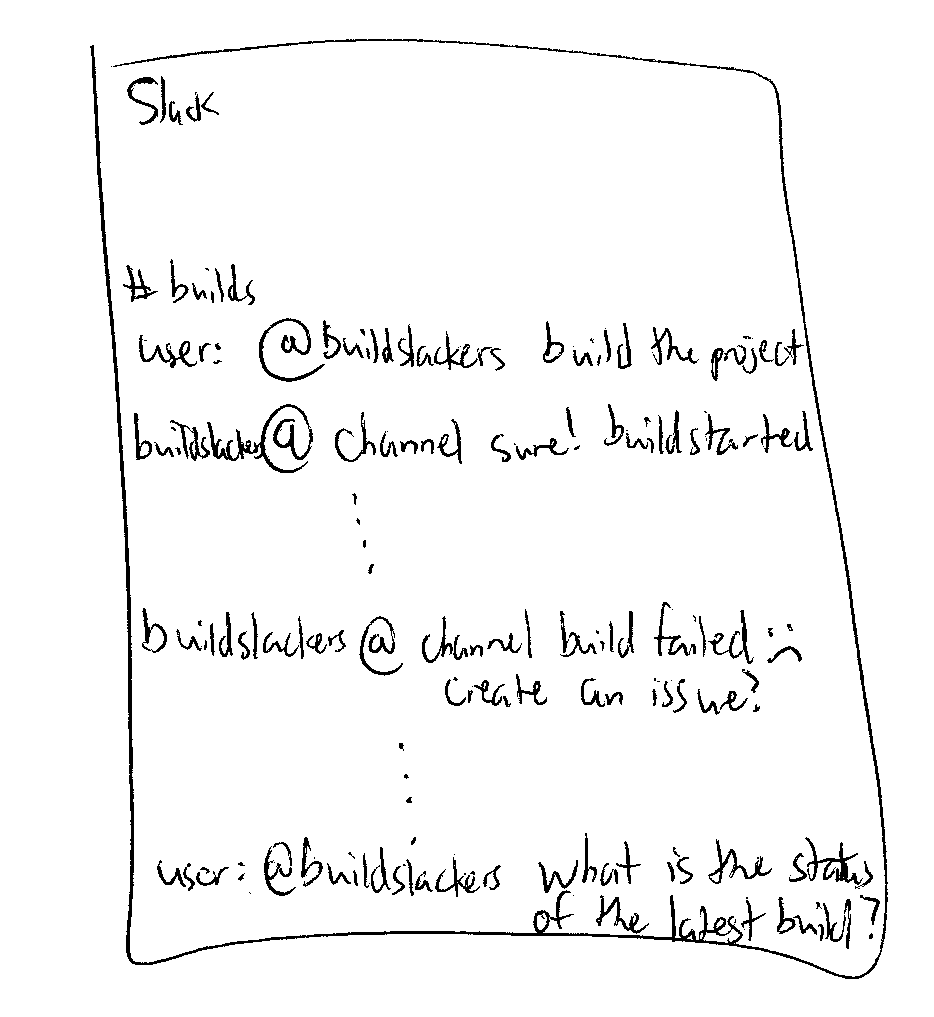 Slack
# builds
user: @buildslackers build the project
buildslackers @ channel sure! build started
buildslackers @ channel build failed :(
create an issue?
user: @buildslackers what is the status
of the latest build?